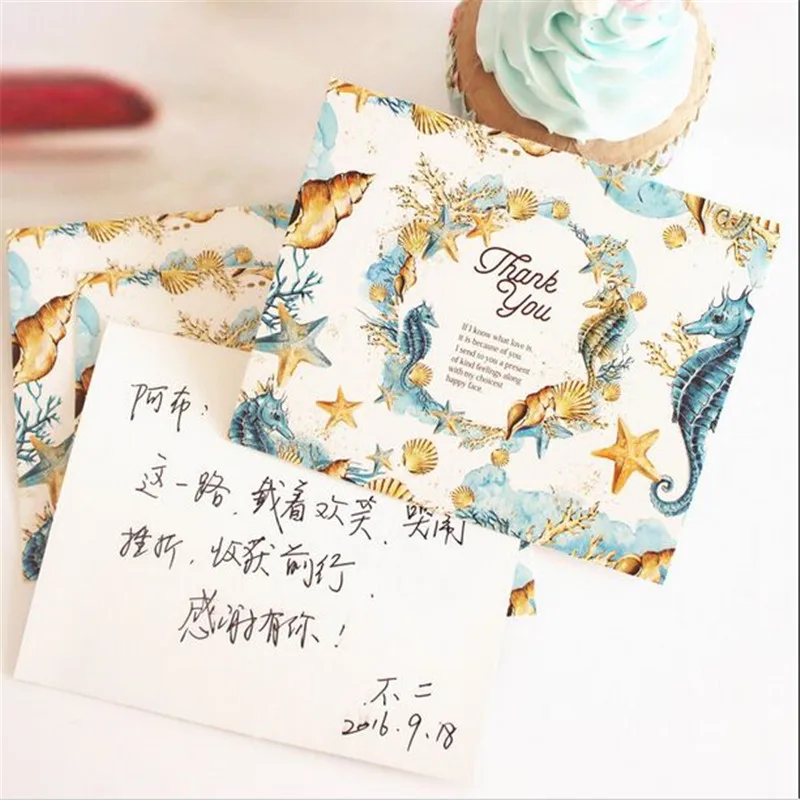 Thank
You
If I know what love is,
it is because of you.
I send to you a present
of kind feelings along
with my choicest
happy face.
阿布：
这一路，载着欢笑、哭闹
挫折，收获前行，
感谢有你！
不二
2016.9.18